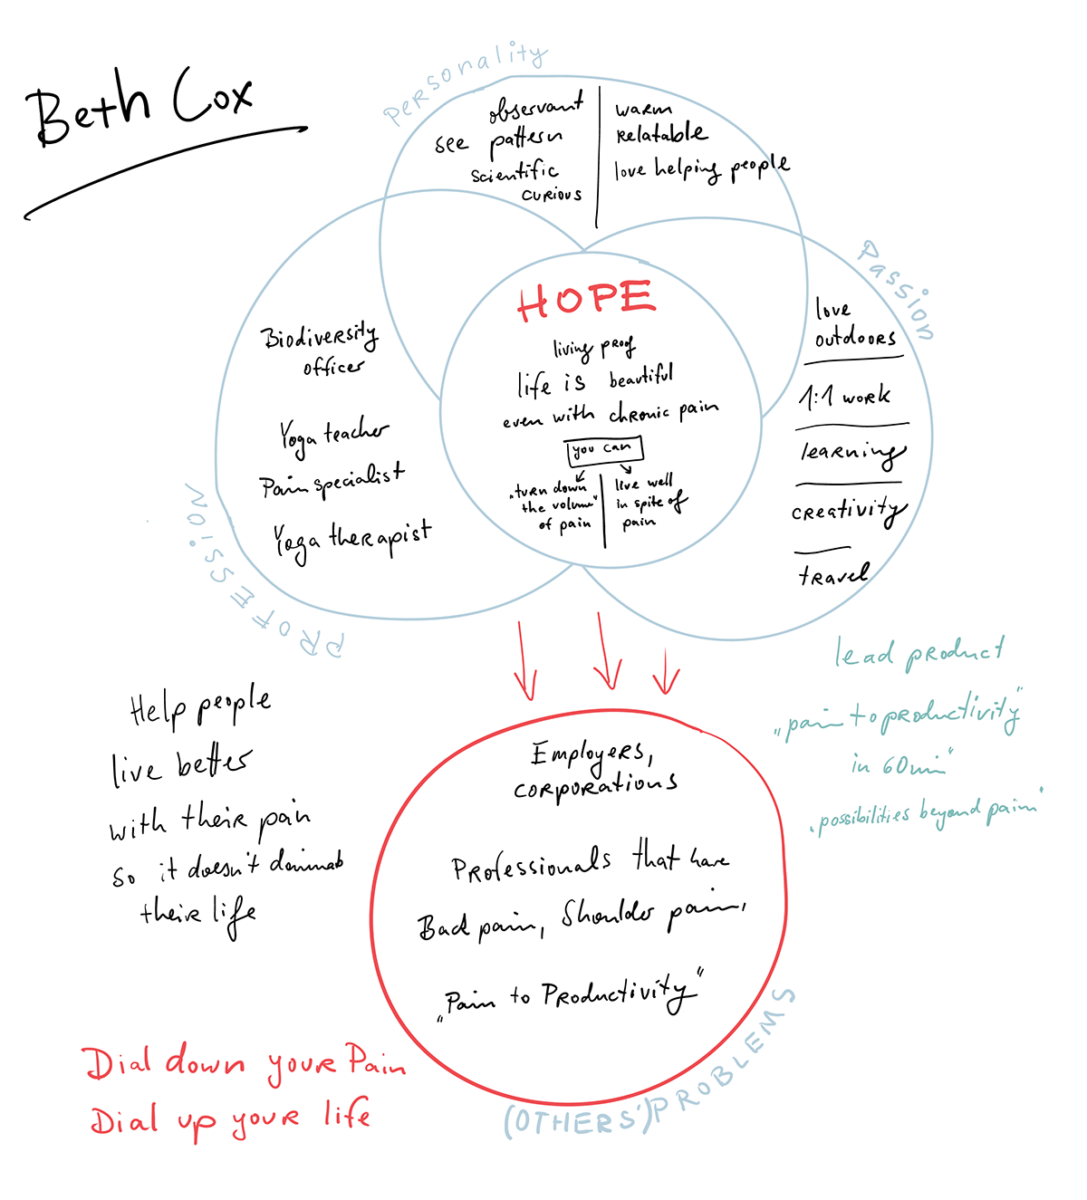 Beth Cox
Personality
observant
see pattern
scientific
curious
warm
relatable
love helping people
Passion
love
outdoors
1:1 work
learning
creativity
travel
HOPE
living proof
life is beautiful
even with chronic pain
you can
„turn down
the volume“
of pain
live well
in spite of
pain
Biodiversity
officer
Yoga teacher
Pain specialist
Yoga therapist
PROFESSION
Help people
live better
with their pain
so it doesn't
their life
lead product
„pain to productivity“
in 60 min“
„possibilities beyond pain“
Employers,
corporations
Professionals that have
Back pain, Shoulder pain,
„Pain to Productivity“
(OTHERS') PROBLEMS
Dial down your Pain
Dial up your life